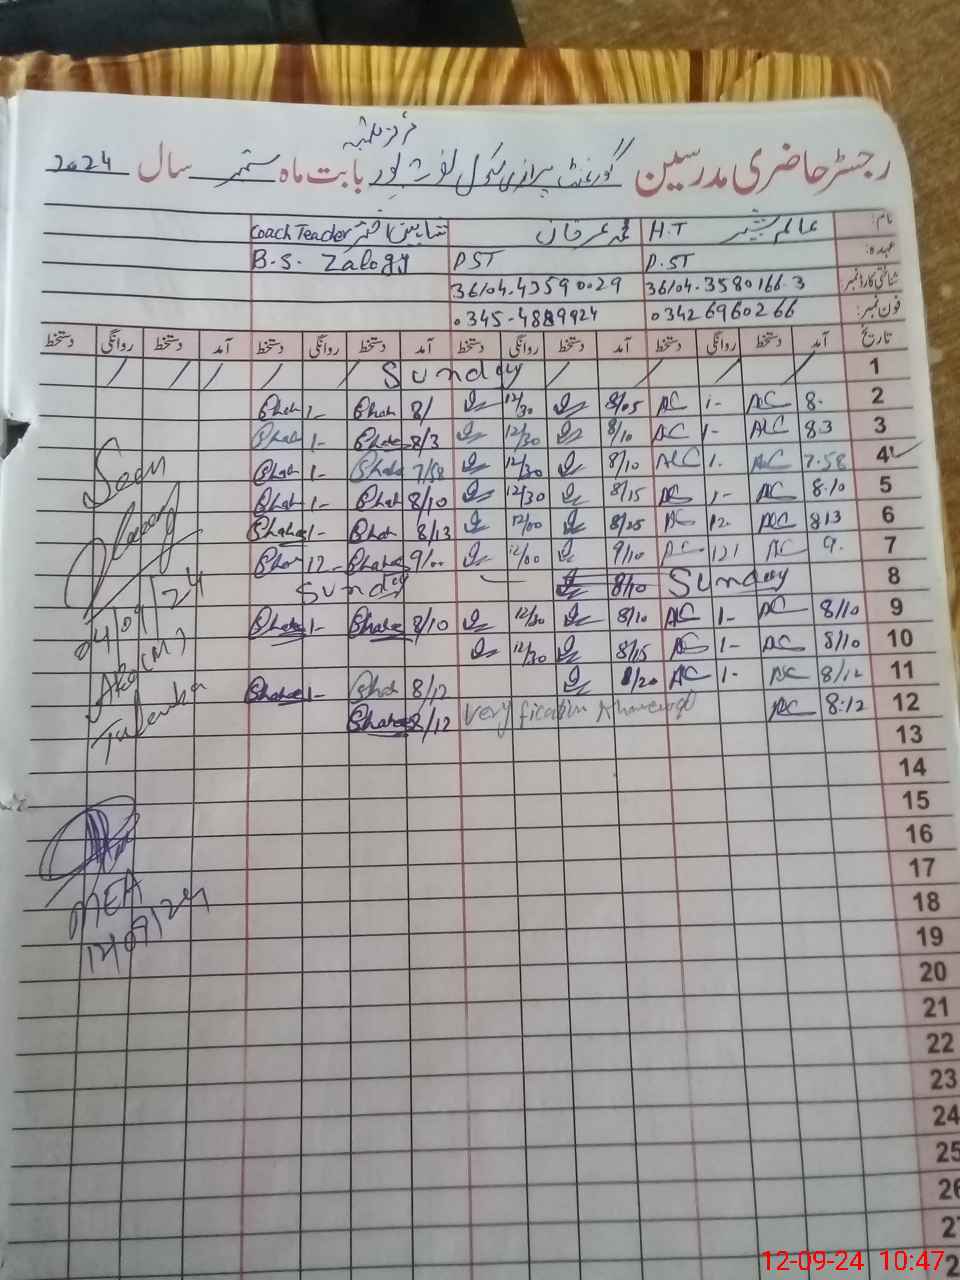 رجسٹر حاضری مدرسین گورنمنٹ پرائمری سکول بابت ماہ ستمبر سال 2024
نام: عالم شیر H.T محمد عرفان شاہین اختر Coach Teacher
عہدہ: P.ST PST B.S. Zalogy
شناختی کارڈ نمبر: 36104.3580166.3 36104.43590029
فون نمبر: 03426960266 0345-4889924
تاریخ آمد دستخط روانگی دستخط آمد دستخط روانگی دستخط آمد دستخط روانگی دستخط آمد دستخط روانگی دستخط
1 Sunday
2 8. AC 1- AC 8/05 12/30 8/ Shah 1- Shah
3 83 AC 1- AC 8/10 12/30 8/3 Shah 1- Shah
4 7.58 AC 1. AC 8/10 12/30 7/58 Shah 1- Shah
5 8.10 AC 1- AC 8/15 12/30 8/10 Shah 1- Shah
6 813 AC 12. AC 8/25 12/00 8/13 Shah 1- Shahe
7 9. AC 121 AC 9/10 12/00 9/00 Shahe 12- Shah
8 Sunday 8/10 Sunday
9 8/10 AC 1- AC 8/10 12/30 8/10 Shahe 1- Shahe
10 8/10 AC 1- AC 8/15 12/30
11 8/12 AC 1- AC 8/20 8/12 Shah 1- Shahe
12 8:12 AC 8/12 Shahe
13
14
15
16
17
18
19
20
21
22
23
24
25
26
Seen
04/09/24
MEA
12/09/24
12-09-24 10:47